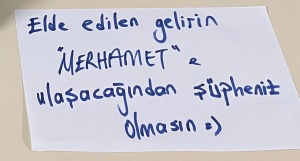 Elde edilen gelirin
"MERHAMET" e
ulaşacağından şüpheniz
olmasın =)